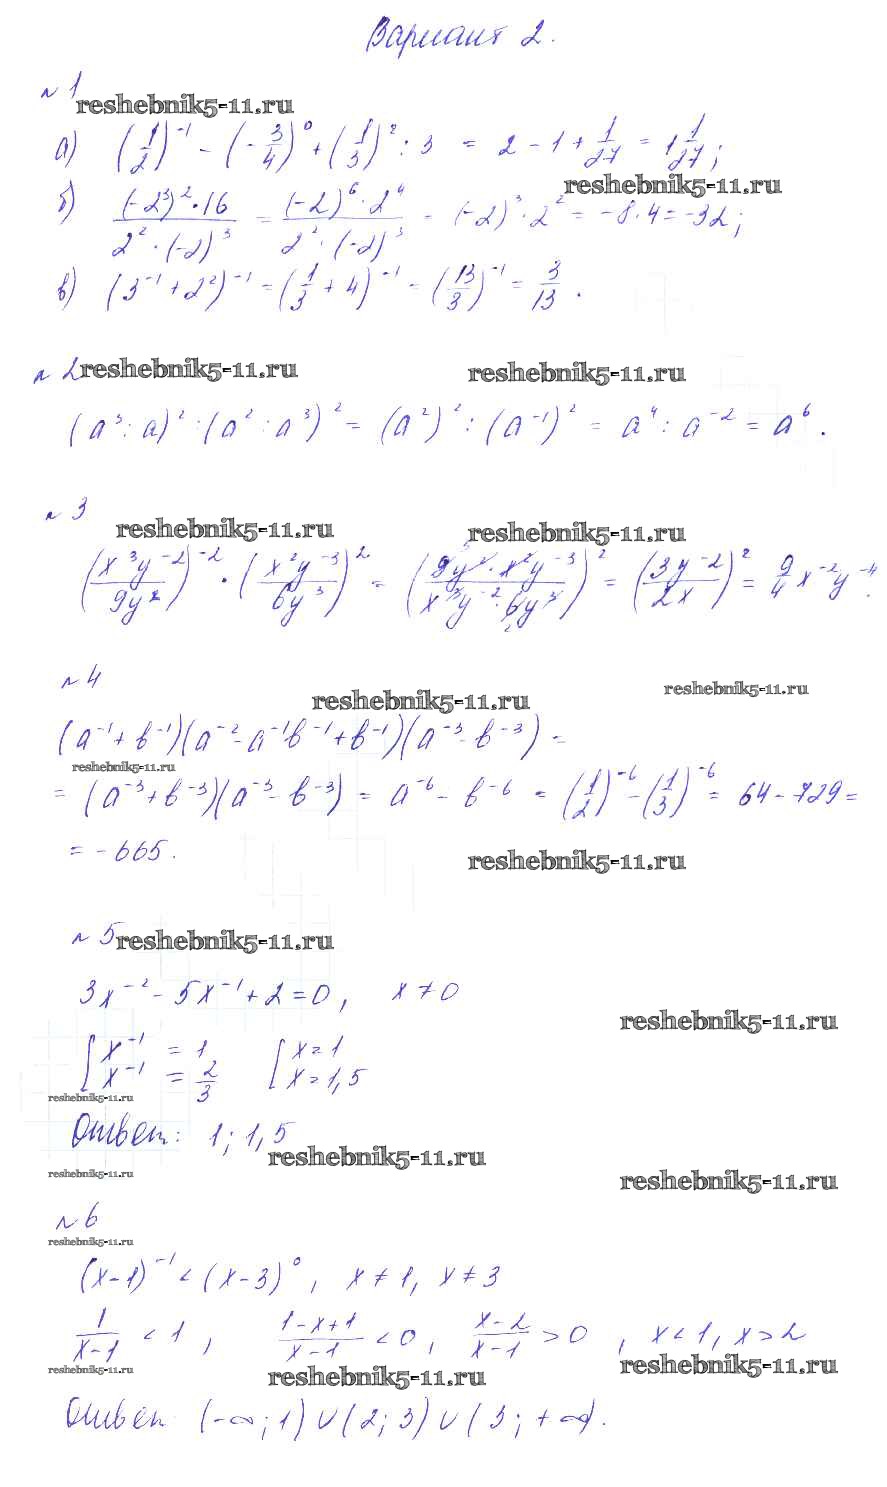 Вариант 2.
№ 1
reshebnik5-11.ru
а) (1/2)⁻¹ - (-3/4)⁰ + (1/3)² : 3 = 2 - 1 + 1/27 = 1 1/27;
reshebnik5-11.ru
б) (-2³)²·16 / 2²·(-2)³ = (-2)⁶·2⁴ / 2²·(-2)³ = (-2)³·2² = -8·4 = -32;
в) (3⁻¹ + 2²)⁻¹ = (1/3 + 4)⁻¹ = (13/3)⁻¹ = 3/13.
№ 2 reshebnik5-11.ru reshebnik5-11.ru
(a³ : a)² : (a² : a³)² = (a²)² : (a⁻¹)² = a⁴ : a⁻² = a⁶.
№ 3
reshebnik5-11.ru reshebnik5-11.ru
(x³y⁻²/9y²)⁻² · (x²y⁻³/6y³)² = (9y²·x²y⁻³/x³y⁻²·6y³)² = (3y⁻²/2x)² = 9/4 x⁻²y⁻⁴.
№ 4
reshebnik5-11.ru reshebnik5-11.ru
(a⁻¹ + b⁻¹)(a⁻² - a⁻¹b⁻¹ + b⁻¹)(a⁻³ - b⁻³) =
reshebnik5-11.ru
= (a⁻³ + b⁻³)(a⁻³ - b⁻³) = a⁻⁶ - b⁻⁶ = (1/2)⁻⁶ - (1/3)⁻⁶ = 64 - 729 =
= -665.
reshebnik5-11.ru
№ 5 reshebnik5-11.ru
3x⁻² - 5x⁻¹ + 2 = 0, x ≠ 0
reshebnik5-11.ru
[ x⁻¹ = 1 [ x = 1
x⁻¹ = 2/3 x = 1,5
reshebnik5-11.ru
Ответ: 1; 1,5
reshebnik5-11.ru
reshebnik5-11.ru reshebnik5-11.ru
№ 6
reshebnik5-11.ru
(x-1)⁻¹ < (x-3)⁰, x ≠ 1, x ≠ 3
1/(x-1) < 1, (1-x+1)/(x-1) < 0, (x-2)/(x-1) > 0, x < 1, x > 2
reshebnik5-11.ru reshebnik5-11.ru reshebnik5-11.ru
Ответ: (-∞; 1) ∪ (2; 3) ∪ (3; +∞).